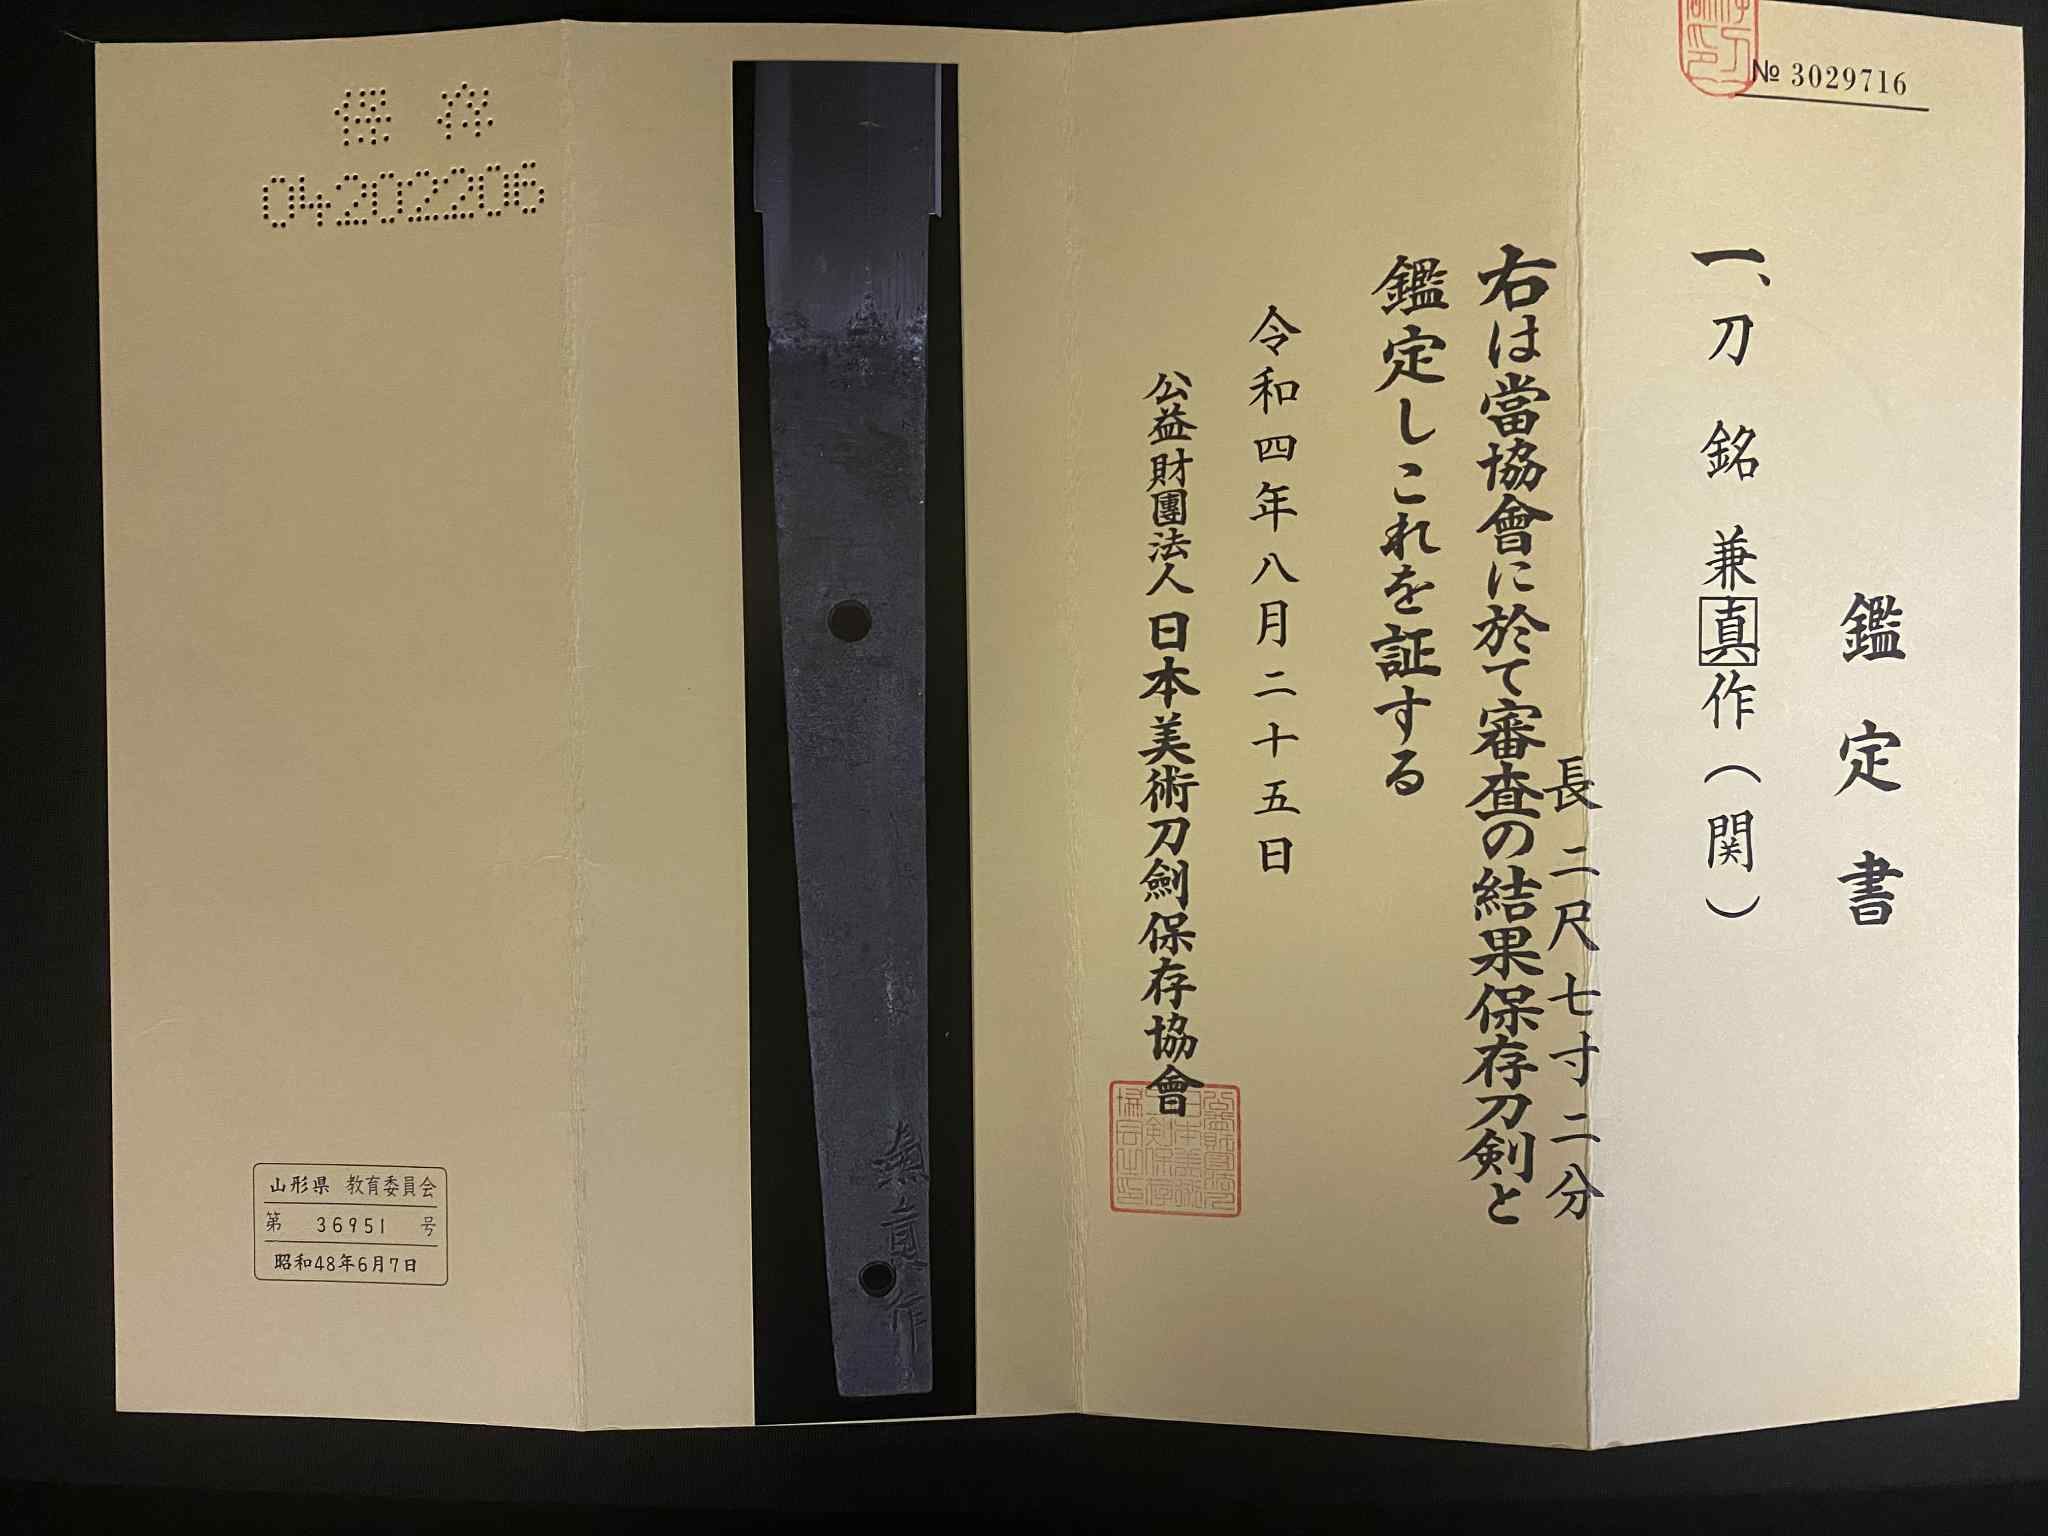 № 3029716
鑑定書
一、刀 銘 兼真作(関)
長 二尺七寸二分
右は當協會に於て審査の結果保存刀剣と
鑑定しこれを証する
令和四年八月二十五日
公益財團法人日本美術刀劍保存協會
保存
04202206
山形県 教育委員会
第 36951 号
昭和48年6月7日